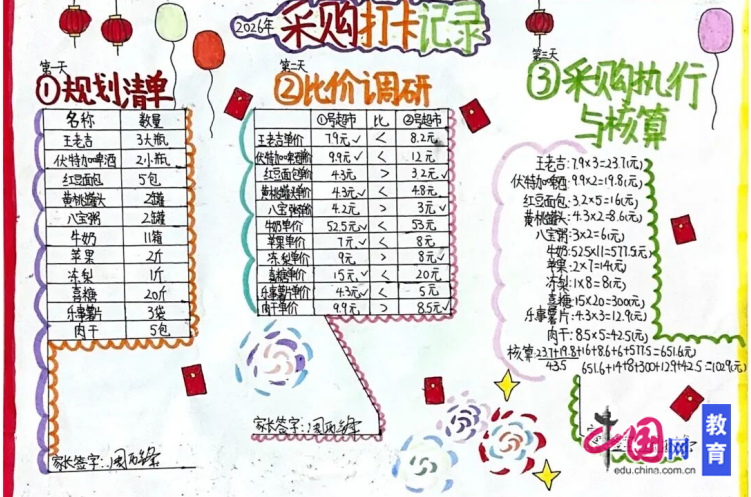 2026年 采购打卡记录
第一天
①规划清单
名称 数量
王老吉 3大瓶
伏特加啤酒 2小瓶
红豆面包 5包
黄桃罐头 2罐
八宝粥 2罐
牛奶 11箱
苹果 2斤
冻梨 1斤
喜糖 20斤
乐事薯片 3袋
肉干 5包
家长签字:
第二天
②比价调研
①号超市 比 ②号超市
王老吉单价 7.9元✓ < 8.2元
伏特加啤酒单价 9.9元✓ < 12元
红豆面包单价 4.3元 > 3.2元✓
黄桃罐头单价 4.3元✓ < 4.8元
八宝粥单价 4.2元 > 3元✓
牛奶单价 52.5元✓ < 53元
苹果单价 7元✓ < 8元
冻梨单价 9元 > 8元✓
喜糖单价 15元✓ < 20元
乐事薯片单价 4.3元✓ < 5元
肉干单价 9.9元 > 8.5元✓
家长签字:
第三天
③采购执行
与核算
王老吉:7.9×3=23.7(元)
伏特加啤酒:9.9×2=19.8(元)
红豆面包:3.2×5=16(元)
黄桃罐头:4.3×2=8.6(元)
八宝粥:3×2=6(元)
牛奶:52.5×11=577.5(元)
苹果:2×7=14(元)
冻梨:1×8=8(元)
喜糖:15×20=300(元)
乐事薯片:4.3×3=12.9(元)
肉干:8.5×5=42.5(元)
核算:23.7+19.8+16+8.6+6+577.5=651.6元
43.5 651.6+14+8+300+12.9+42.5=1029(元)
中国网 教育
edu.china.com.cn